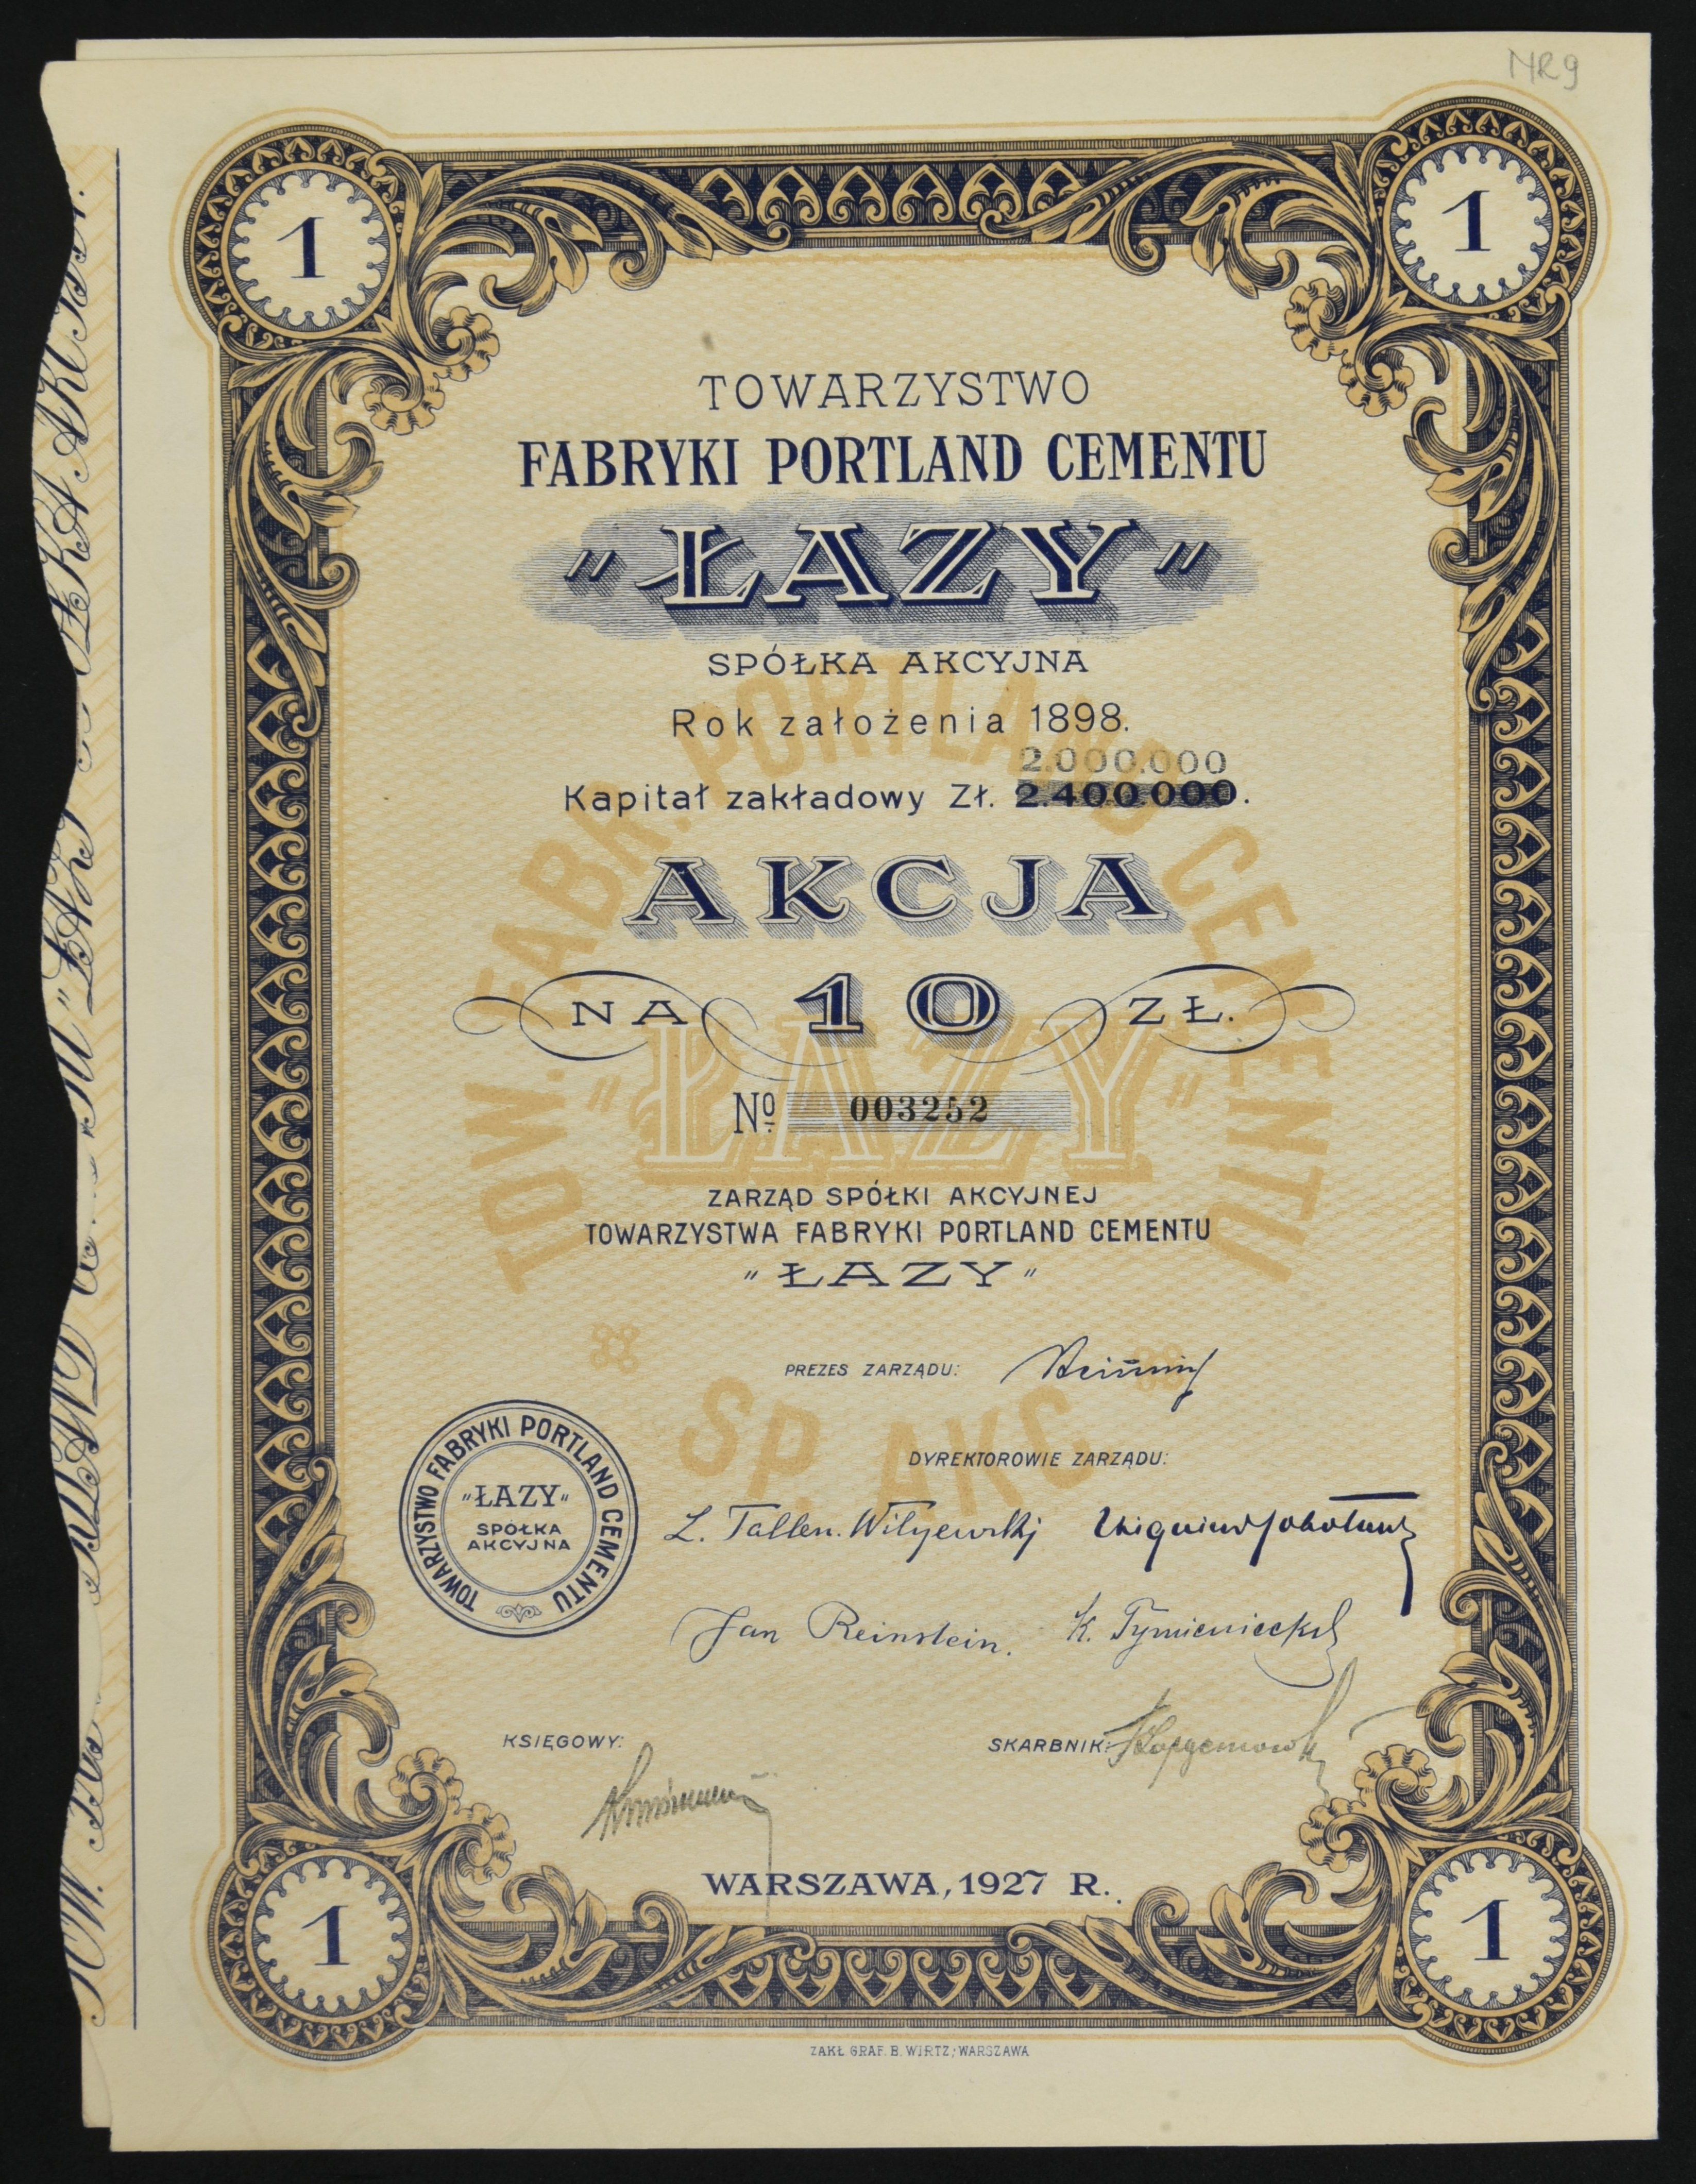 NR 9
1
1
TOWARZYSTWO
FABRYKI PORTLAND CEMENTU
"ŁAZY"
SPÓŁKA AKCYJNA
Rok założenia 1898.
2.000.000
Kapitał zakładowy Zł. 2.400.000.
AKCJA
NA 10 ZŁ.
Nº 003252
TOW. FABR. PORTLAND CEMENTU
"ŁAZY"
SP. AKC.
ZARZĄD SPÓŁKI AKCYJNEJ
TOWARZYSTWA FABRYKI PORTLAND CEMENTU
"ŁAZY"
PREZES ZARZĄDU:
DYREKTOROWIE ZARZĄDU:
TOWARZYSTWO FABRYKI PORTLAND CEMENTU
"ŁAZY"
SPÓŁKA
AKCYJNA
L. Tallen-Wilczewski
Jan Reinstein. K. Tymieniecki
KSIĘGOWY: SKARBNIK:
WARSZAWA, 1927 R.
1
1
ZAKŁ. GRAF. B. WIRTZ, WARSZAWA